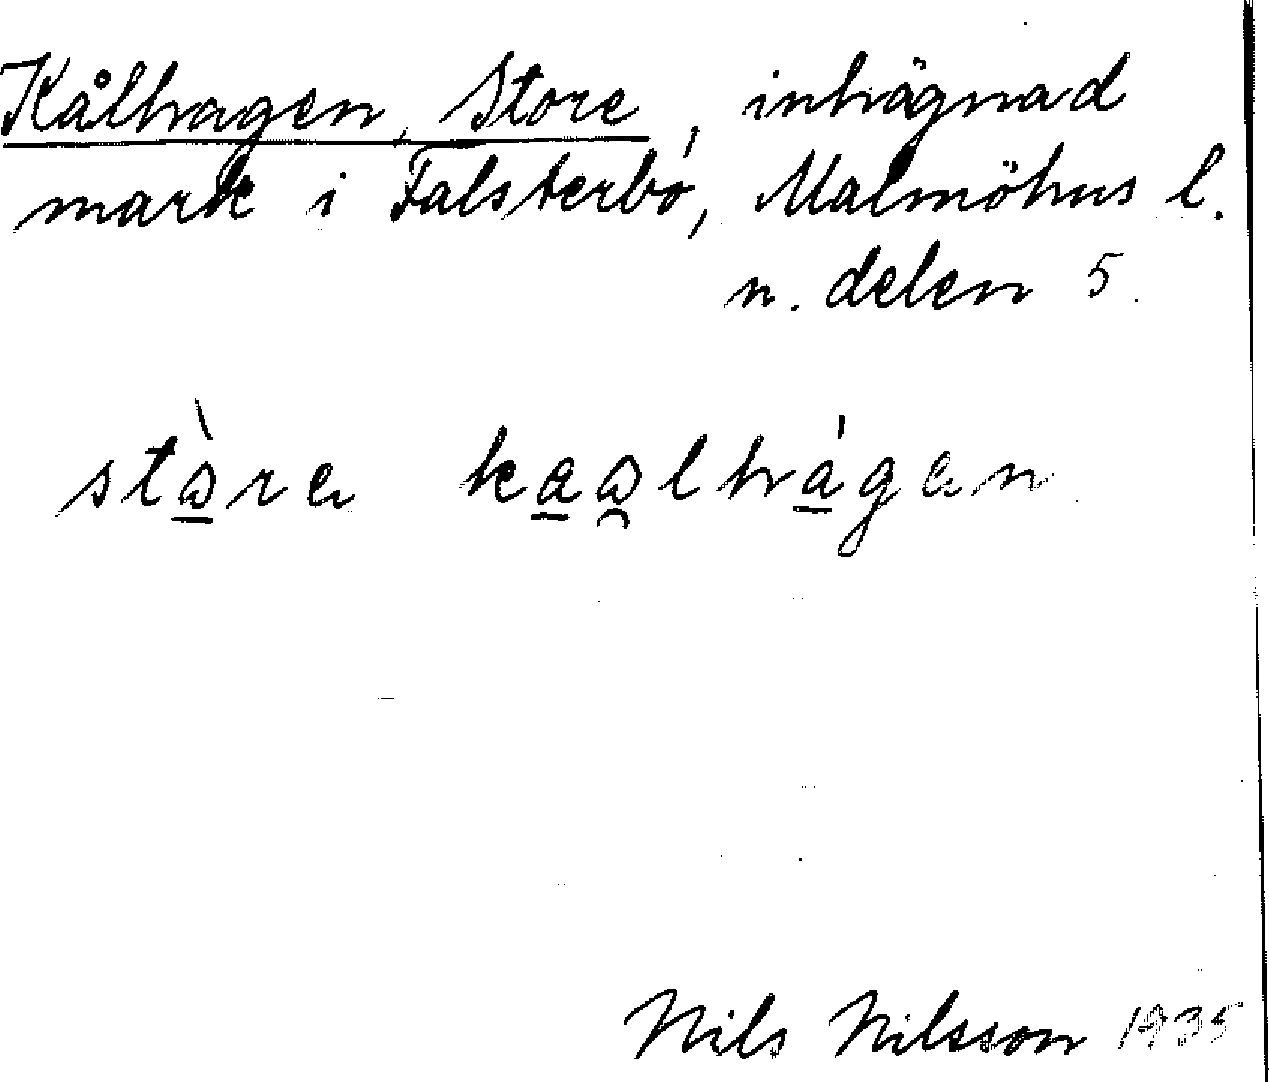 Kålhagen, Store, inhägnad
mark i Falsterbo, Malmöhus l.
n. delen 5.
stàre kaalhágen
Nils Nilsson 1935